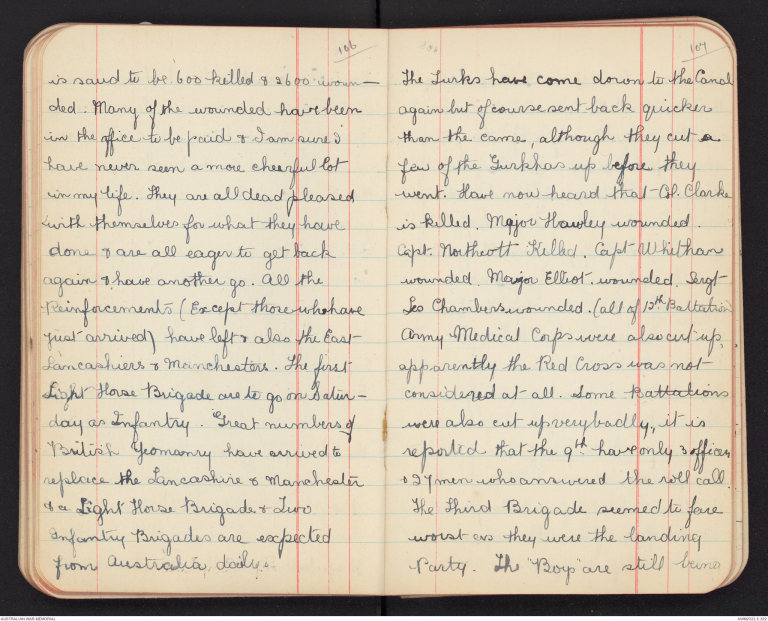 106
is said to be 600 killed & 2600 woun-
ded. Many of the wounded have been
in the office to be paid & I am sure I
have never seen a more cheerful lot
in my life. They are all dead pleased
with themselves for what they have
done & are all eager to get back
again & have another go. All the
Reinforcements (Except those who have
just arrived) have left & also the East
Lancashiers & Manchesters. The first
Light Horse Brigade are to go on Satur-
day as Infantry. Great numbers of
British Yeomanry have arrived to
replace the Lancashire & Manchester
& a Light Horse Brigade & Two
Infantry Brigades are expected
from Australia, daily.
107
The Turks have come down to the Canal
again but of course sent back quicker
than the came, although they cut a
few of the Gurkhas up before they
went. Have now heard that Col. Clarke
is killed. Major Hawley wounded.
Capt. Northcott Killed. Capt Whitham
wounded. Major Elliot wounded. Sergt
Leo Chambers wounded. (all of 12th Battalion)
Army Medical Corps were also cut up,
apparently the Red Cross was not
considered at all. Some Battalions
were also cut up very badly, it is
reported that the 9th have only 3 officers
& 27 men who answered the roll call.
The Third Brigade seemed to fare
worst as they were the landing
Party. The "Boys" are still being
AUSTRALIAN WAR MEMORIAL